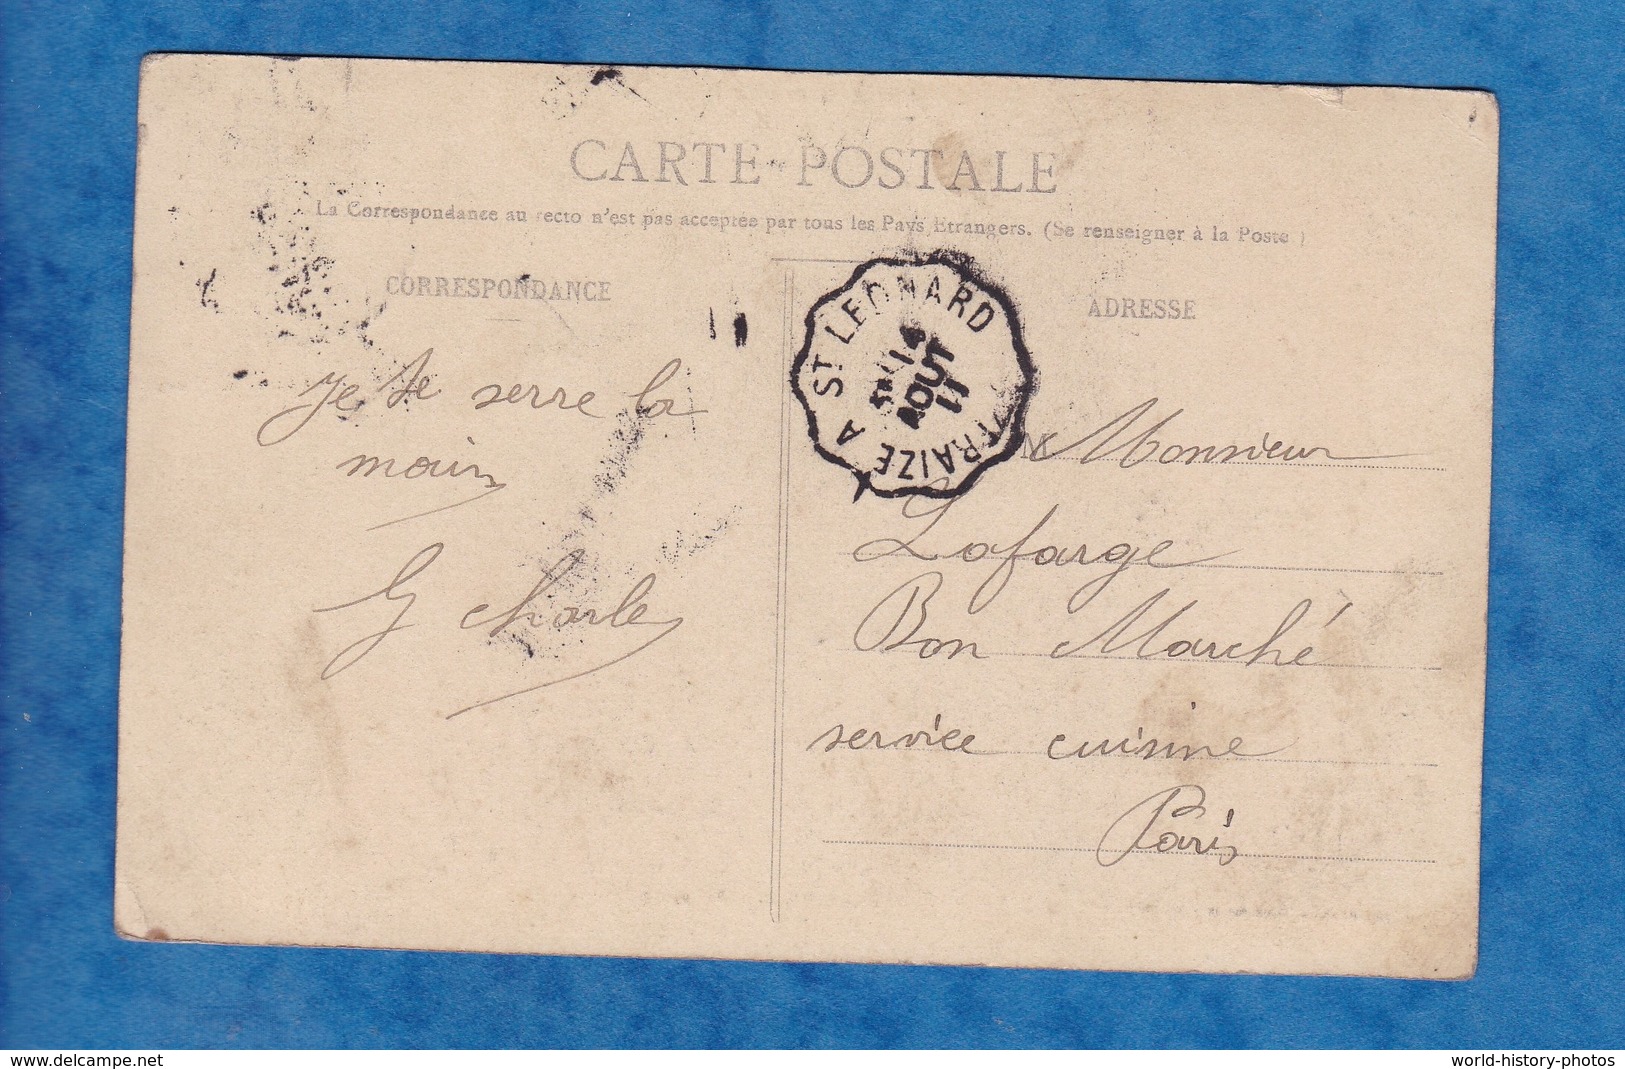 CARTE POSTALE
La Correspondance au recto n'est pas acceptée par tous les Pays Etrangers. (Se renseigner à la Poste)
CORRESPONDANCE
ADRESSE
ST LEONARD
TRAIZE A
14
AOUT
11
je te serre la
main
G Charles
M Monsieur
Lafarge
Bon Marché
service cuisine
Paris
delcampe.net
world-history-photos